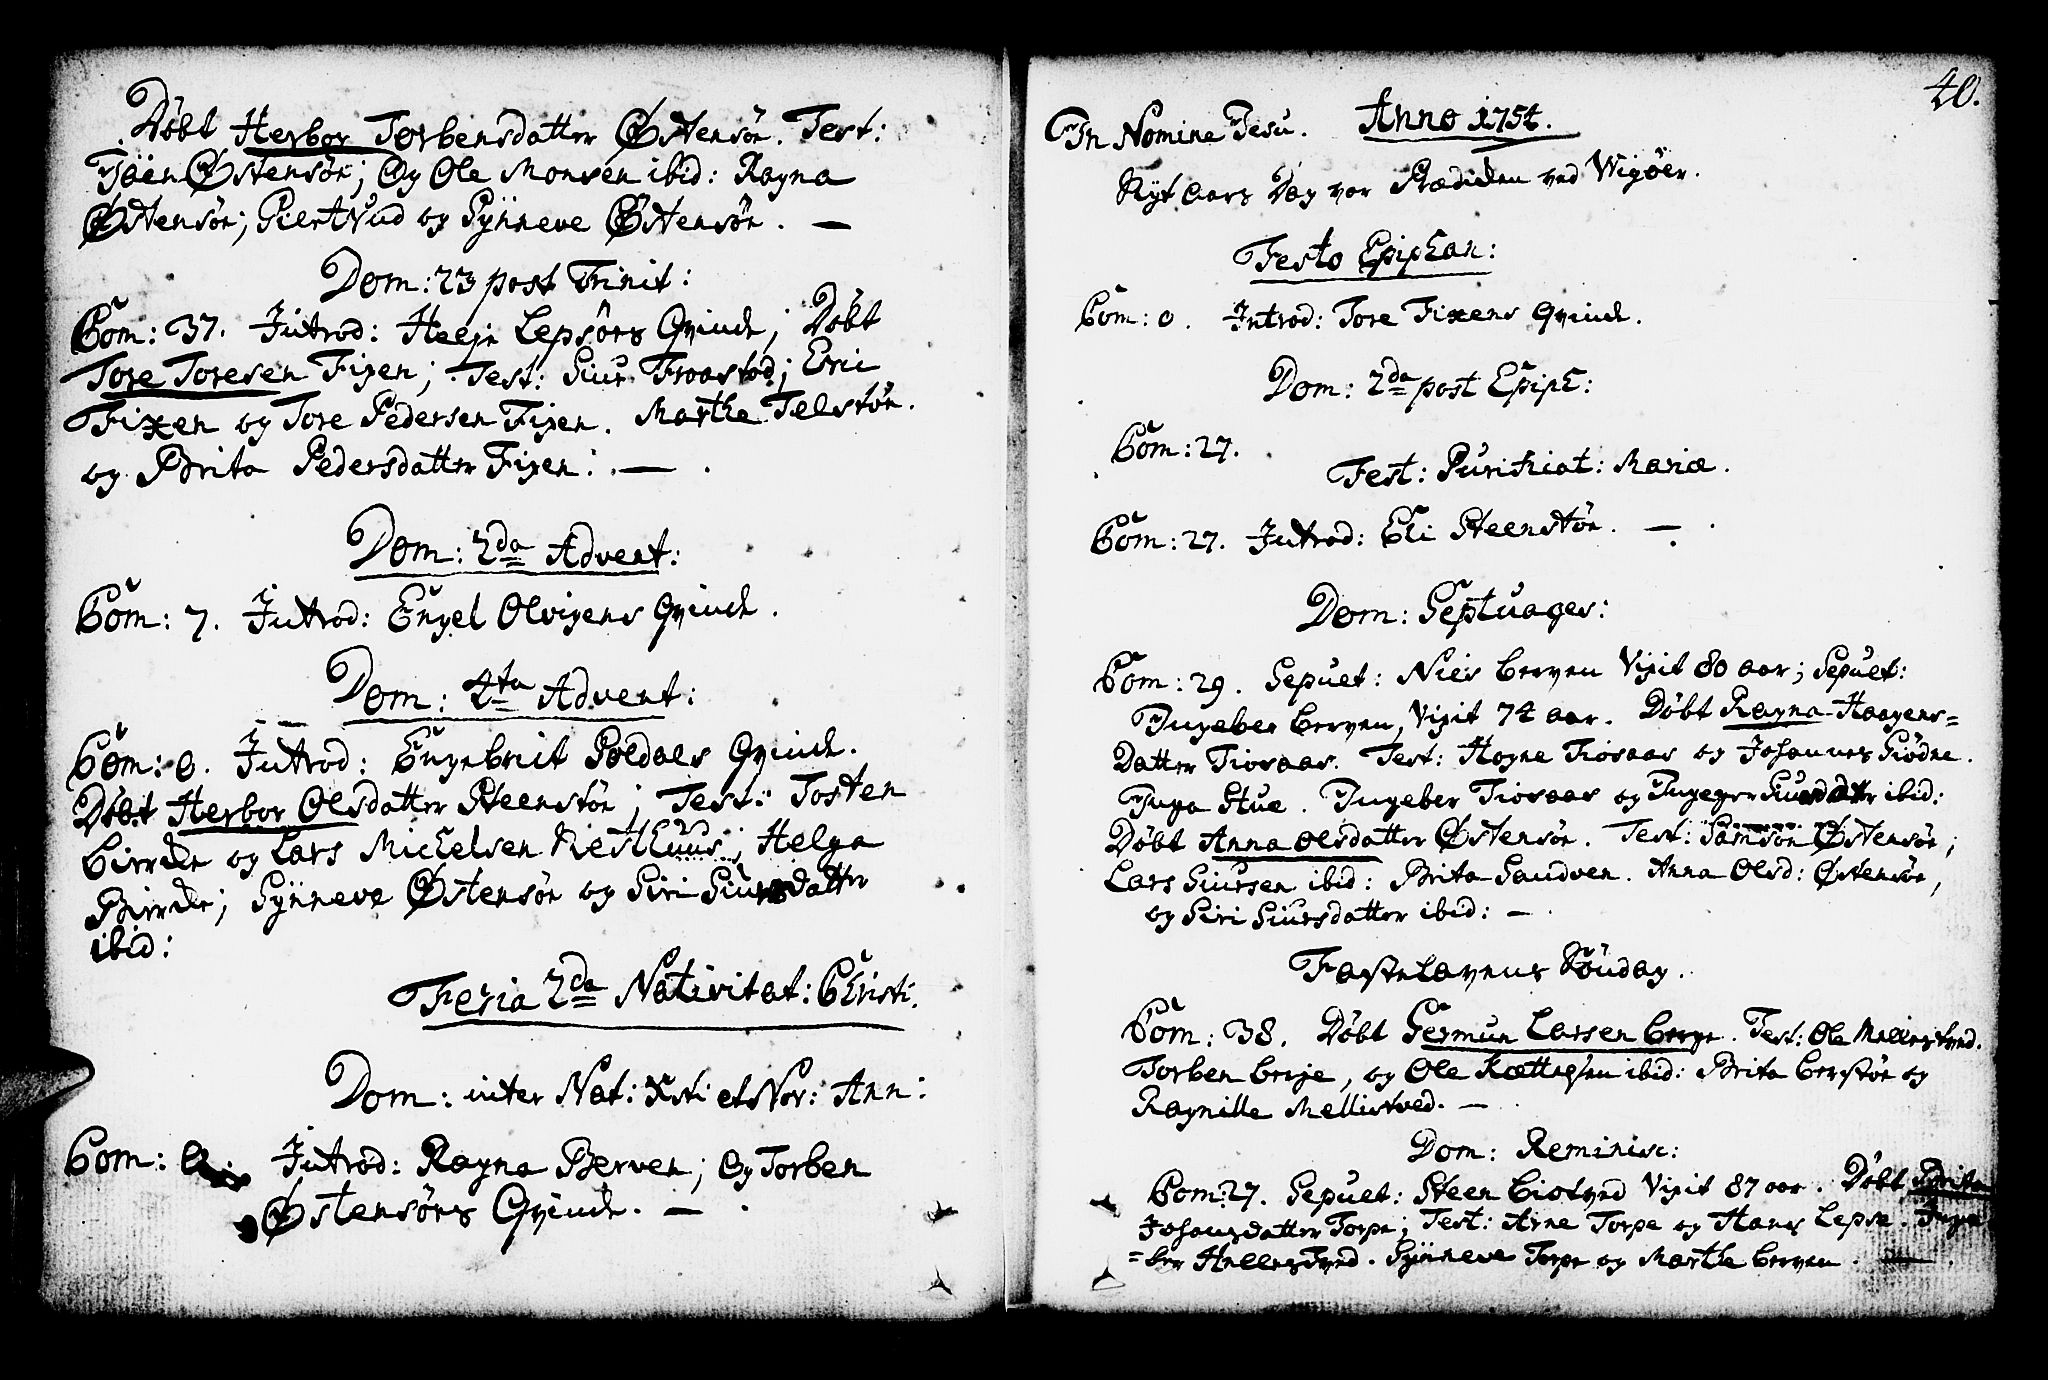 Døbt Herbor Torbensdatter Østensøe. Test:
Joen Østensøe; Og Ole Monsen ibid: Ragna
Østensøe; Giertrud og Synneve Østensøe. —
Dom: 23 post Trinit:
Com: 37. Introd: Helje Lepsøes Qvinde; Døbt
Tore Toresen Fixen; Test: Siur Froastad; Eric
Fixen og Tore Pedersen Fixen. Marthe Telstøe.
og Brita Pedersdatter Fixen: —
Dom: 2da Advent:
Com: 7. Introd: Engel Olvigens Qvinde.
Dom: 4ta Advent:
Com: 0. Introd: Engebrit Soldals Qvinde.
Døbt Herbor Olsdatter Steenstøe; Test: Tosten
Birrde og Lars Michelsen Nesthuus; Helga
Birrde; Synneve Østensøe og Siri Siursdatter
ibid:
Feria 2da Nativitat: Christi.
Dom: inter Nat: Xsti et Nov: Ann:
Com: 0. Introd: Ragna Berven; Og Torben
Østensøes Qvinde. —
40.
In Nomine Jesu. Anno 1754.
Nyt Aars Dag var Prædiken ved Vigøer.
Festo Epiphan:
Com: 0. Introd: Tore Fixens Qvinde.
Dom: 2da post Epiph:
Com: 27.
Fest: Purificat: Mariæ.
Com: 27. Introd: Eli Steenstøe. —
Dom: Septuages:
Com: 29. Sepult: Niels Berven Vixit 80 aar; Sepult:
Ingeber Berven, Vixit 74 aar. Døbt Ragna Haagens=
Datter Tiosaas. Test: Hogne Tiosaas og Johannes Giødne.
Inga Stue. Ingeber Tiosaas og Ingegier Siursdatter ibid:
Døbt Anna Olsdatter Østensøe. Test: Samson Østensøe;
Lars Siursen ibid: Brita Sandven. Anna Olsd: Østensøe,
og Siri Siursdatter ibid: —
Fastelavens Søndag.
Com: 38. Døbt Germun Larsen Berge. Test: Ole Mellestved.
Torben Berje, og Ole Kættelsen ibid: Brita Berstøe og
Ragnille Mellistved. —
Dom: Reminisc:
Com: 27. Sepult: Steen Biotved Vixit 87 aar. Døbt Brita
Johansdatter Torpe; Test: Arne Torpe og Hans Lepsøe. Inge
=ber Hellestved. Synneve Torpe og Marthe Berven. —